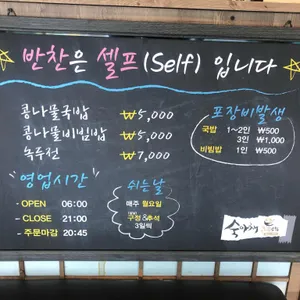 반찬은 셀프(Self) 입니다
콩나물국밥 ₩5,000
콩나물비빔밥 ₩5,000
녹두전 ₩7,000
포장비발생
국밥 1~2인 ₩500
3인 ₩1,000
비빔밥 1인 ₩500
"영업시간"
- OPEN 06:00
- CLOSE 21:00
- 주문마감 20:45
쉬는날
매주 월요일
구정 & 추석
3일씩